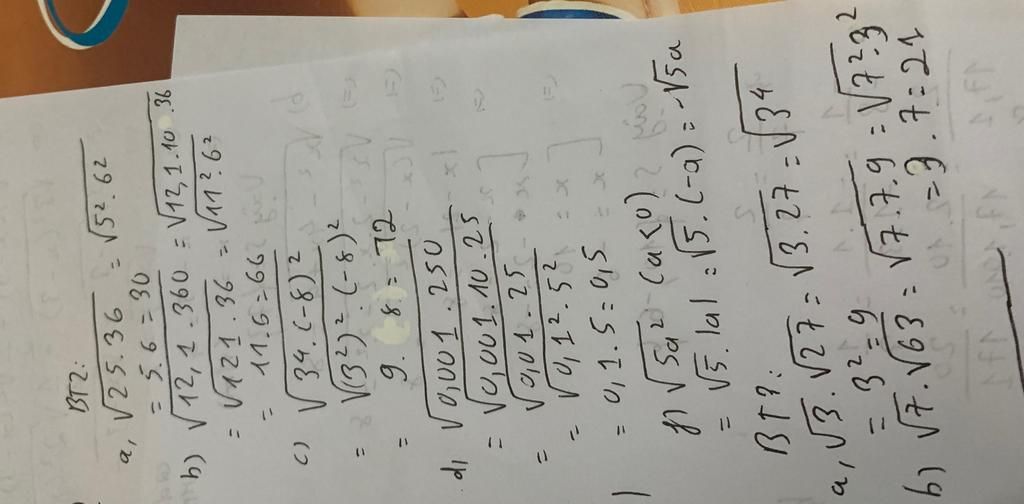 BT2:
a, √25.36 = √5².6²
= 5.6 = 30
b) √12,1.360 = √12,1.10.36
= √121.36 = √11².6²
= 11.6 = 66
c) √3⁴.(-8)²
= √(3²)².(-8)²
= 9.8 = 72
d, √0,001.250
= √0,001.10.25
= √0,01.25
= √0,1².5²
= 0,1.5 = 0,5
f) √5a² (a<0)
= √5.|a| = √5.(-a) = -√5a
BT7:
a, √3.√27 = √3.27 = √3⁴
= 3² = 9
b) √7.√63 = √7.7.9 = √7².3²
= 3.7 = 21